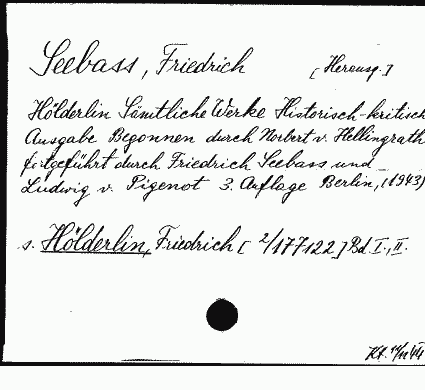 Seebass, Friedrich [Herausg.]
Hölderlin Sämtliche Werke Historisch-kritisch
Ausgabe Begonnen durch Norbert v. Hellingrath
fortgeführt durch Friedrich Seebass und
Ludwig v. Pigenot 3. Auflage Berlin, (1943)
s. Hölderlin, Friedrich [2/177122] Bd I., II.